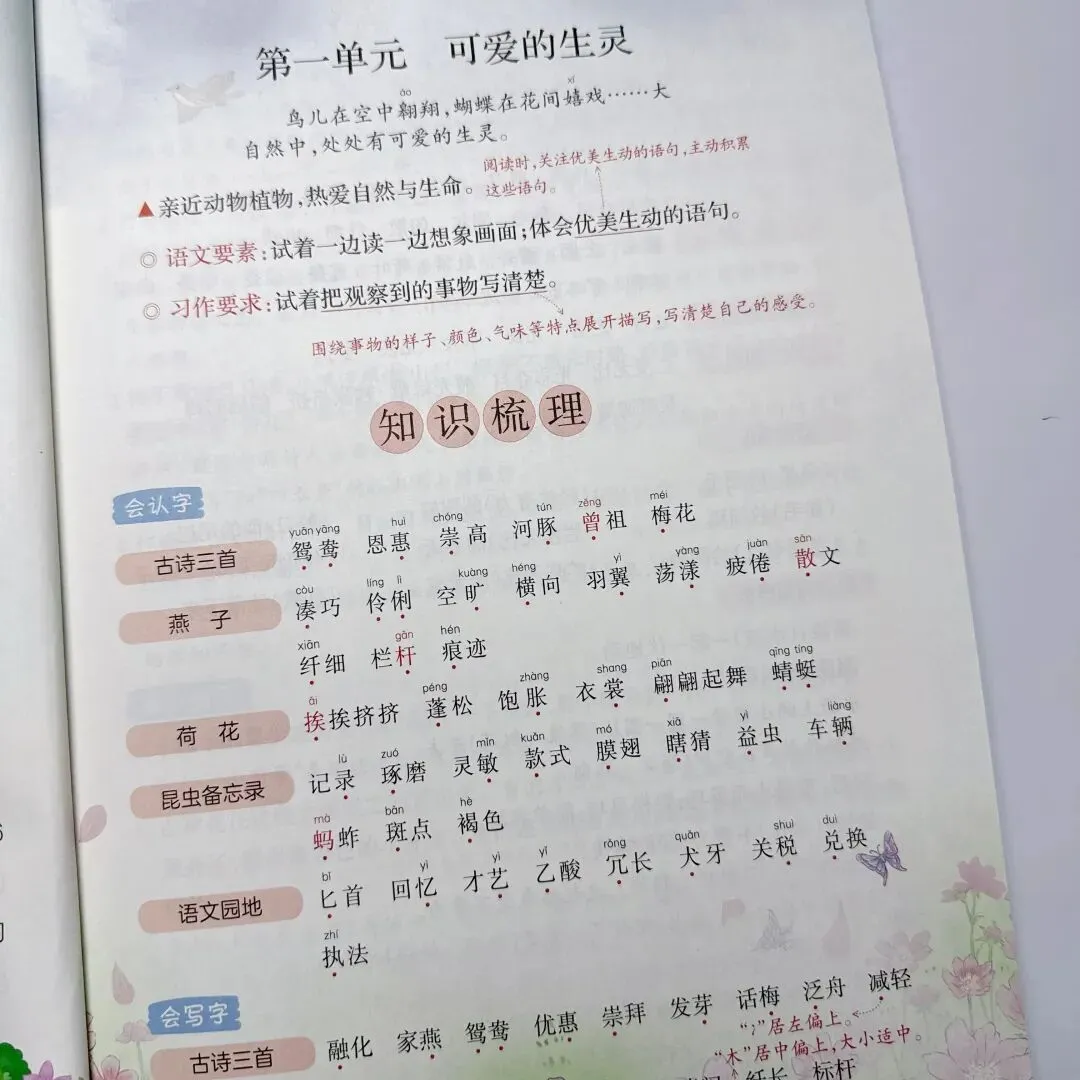 第一单元 可爱的生灵
áo xī
鸟儿在空中翱翔,蝴蝶在花间嬉戏……大
自然中,处处有可爱的生灵。
阅读时,关注优美生动的语句,主动积累
这些语句。
▲亲近动物植物,热爱自然与生命。
◎ 语文要素:试着一边读一边想象画面;体会优美生动的语句。
◎ 习作要求:试着把观察到的事物写清楚。
围绕事物的样子、颜色、气味等特点展开描写,写清楚自己的感受。
知识梳理
会认字
yuān yāng huì chóng tún zēng méi
古诗三首 鸳鸯 恩惠 崇高 河豚 曾祖 梅花
còu líng lì kuàng héng yì yàng juàn sǎn
燕子 凑巧 伶俐 空旷 横向 羽翼 荡漾 疲倦 散文
xiān gān hén
纤细 栏杆 痕迹
āi péng zhàng shang piān qīng tíng
荷花 挨挨挤挤 蓬松 饱胀 衣裳 翩翩起舞 蜻蜓
lù zuó mǐn kuǎn mó xiā yì liàng
昆虫备忘录 记录 琢磨 灵敏 款式 膜翅 瞎猜 益虫 车辆
mà bān hè
蚂蚱 斑点 褐色
bǐ yì yì yǐ rǒng quǎn shuì duì
语文园地 匕首 回忆 才艺 乙酸 冗长 犬牙 关税 兑换
zhí
执法
会写字
古诗三首 融化 家燕 鸳鸯 优惠 崇拜 发芽 话梅 泛舟 减轻
“冫”居左偏上。
“木”居中偏上,大小适中。
纤长 标杆